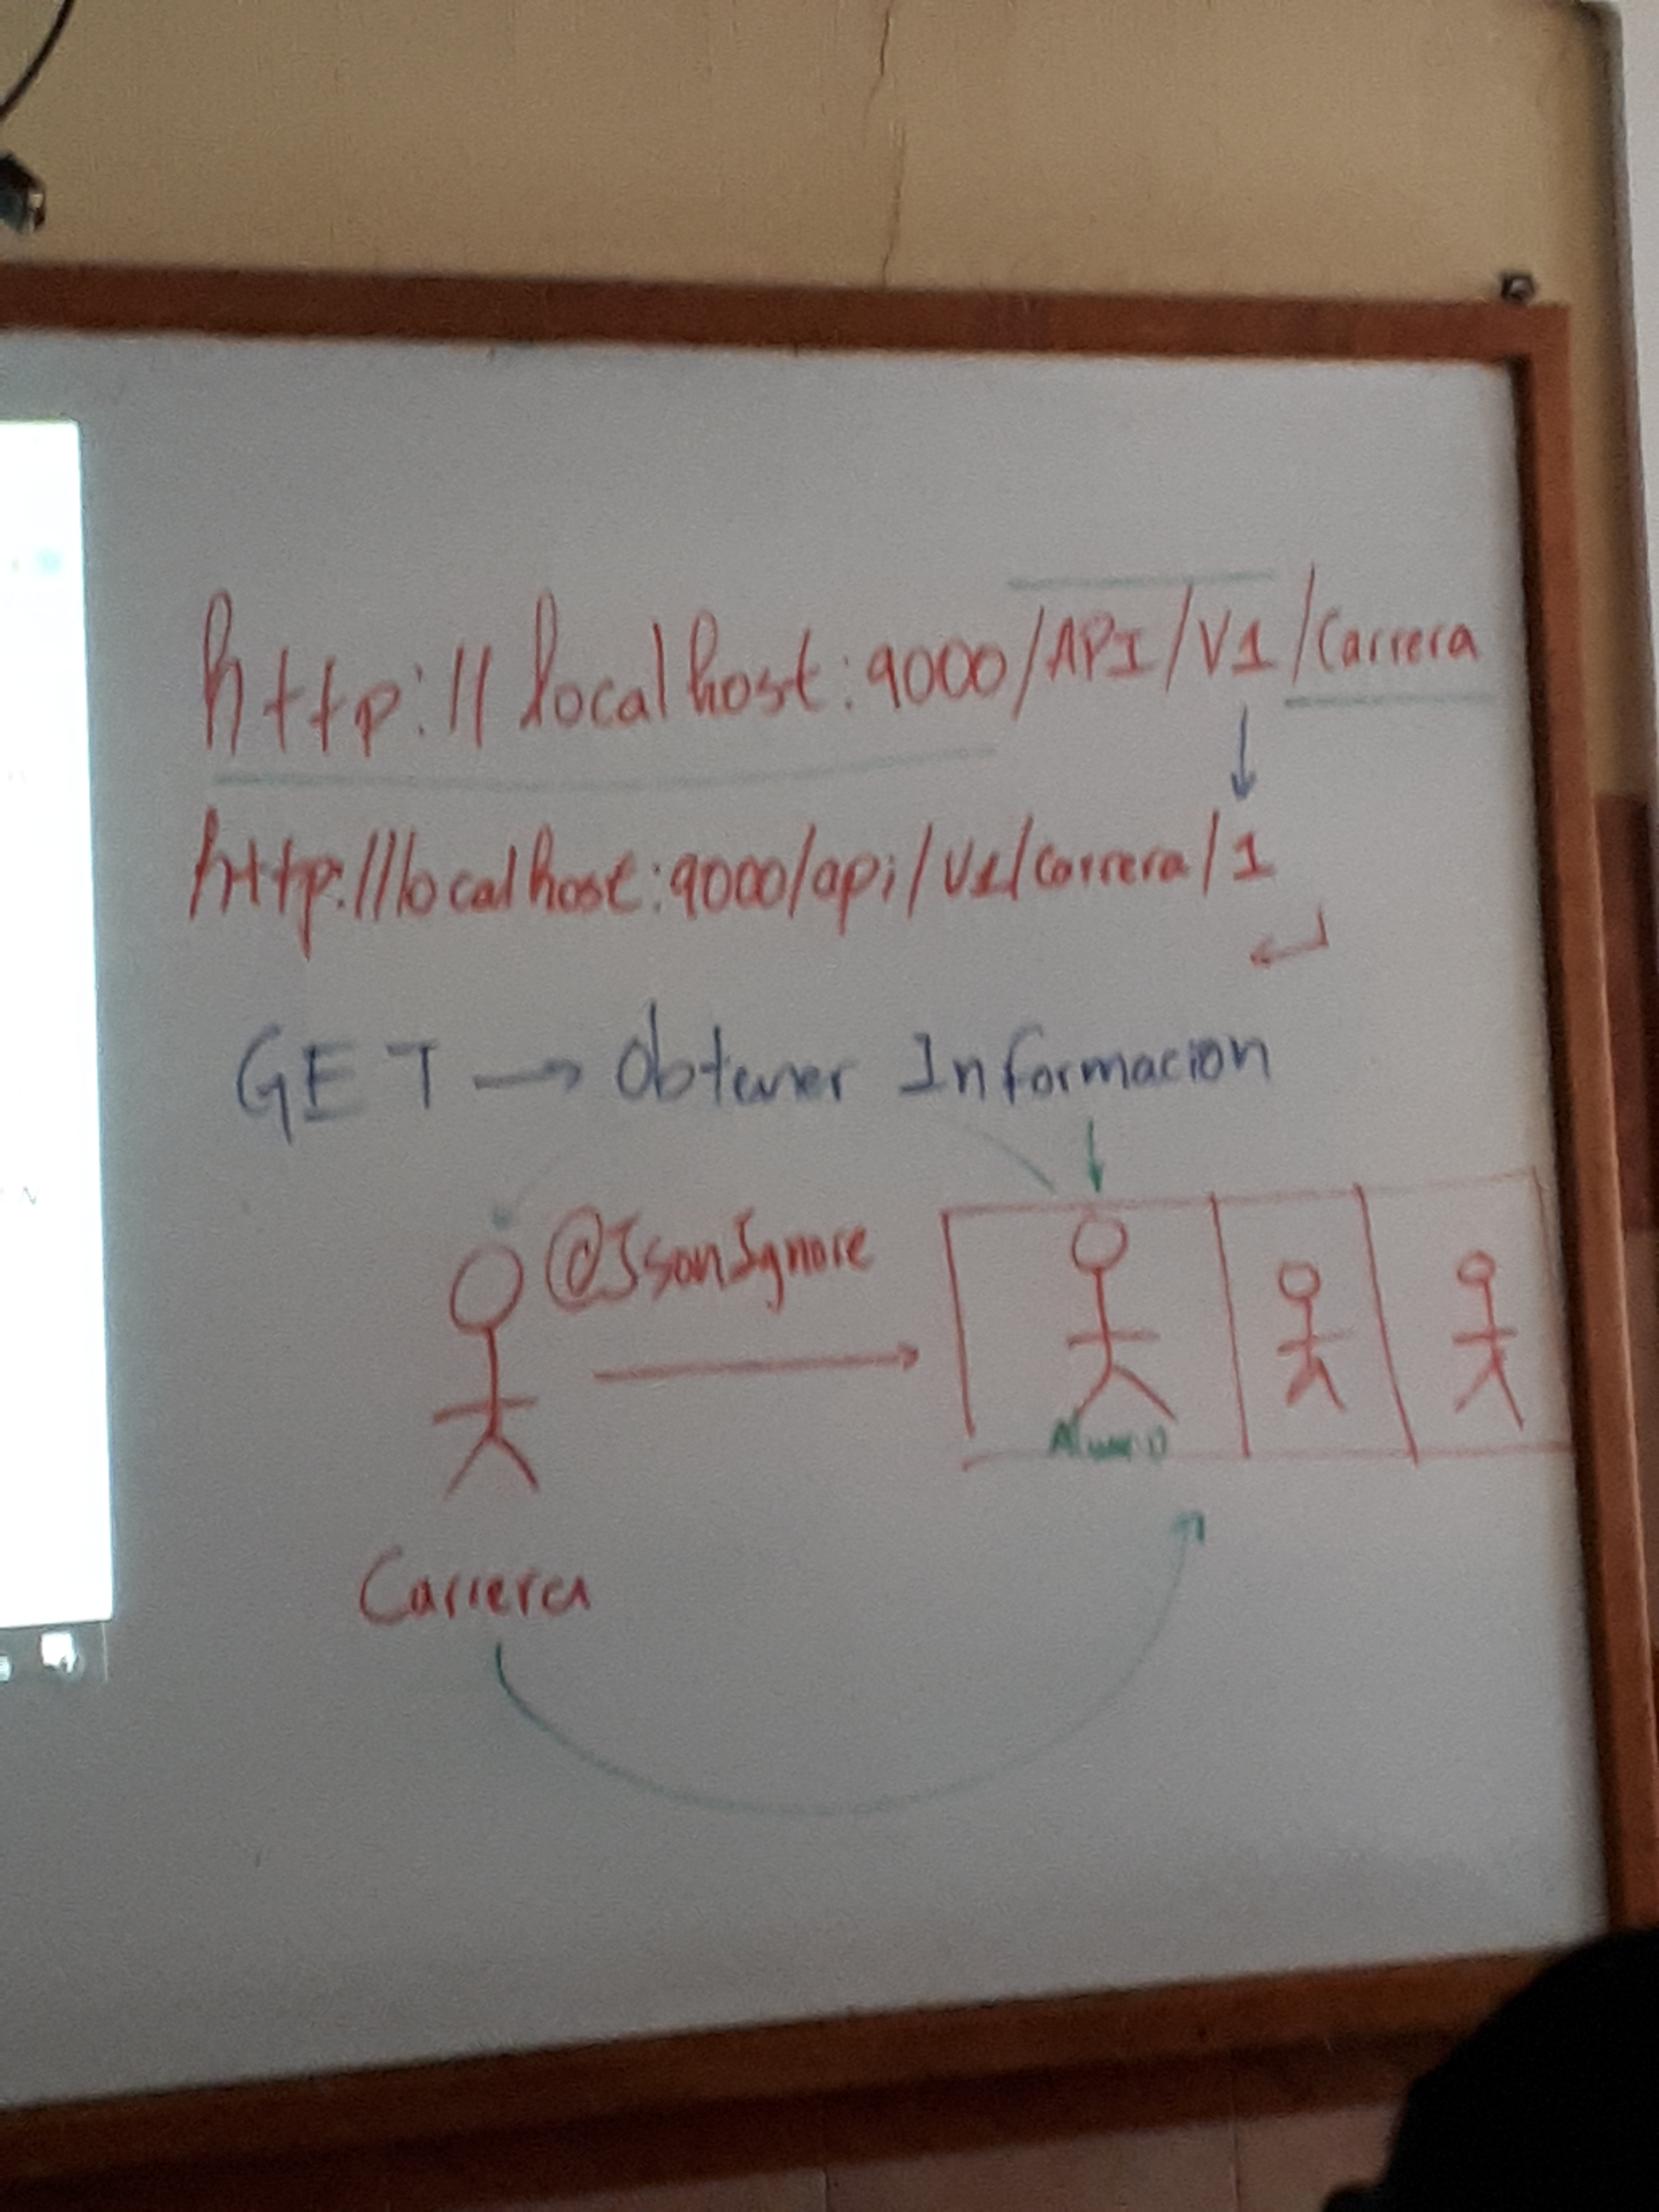 http://localhost:9000/API/V1/Carrera
http://localhost:9000/api/V1/carrera/1
GET → Obtener Informacion
@JsonIgnore
Alumno
Carrera